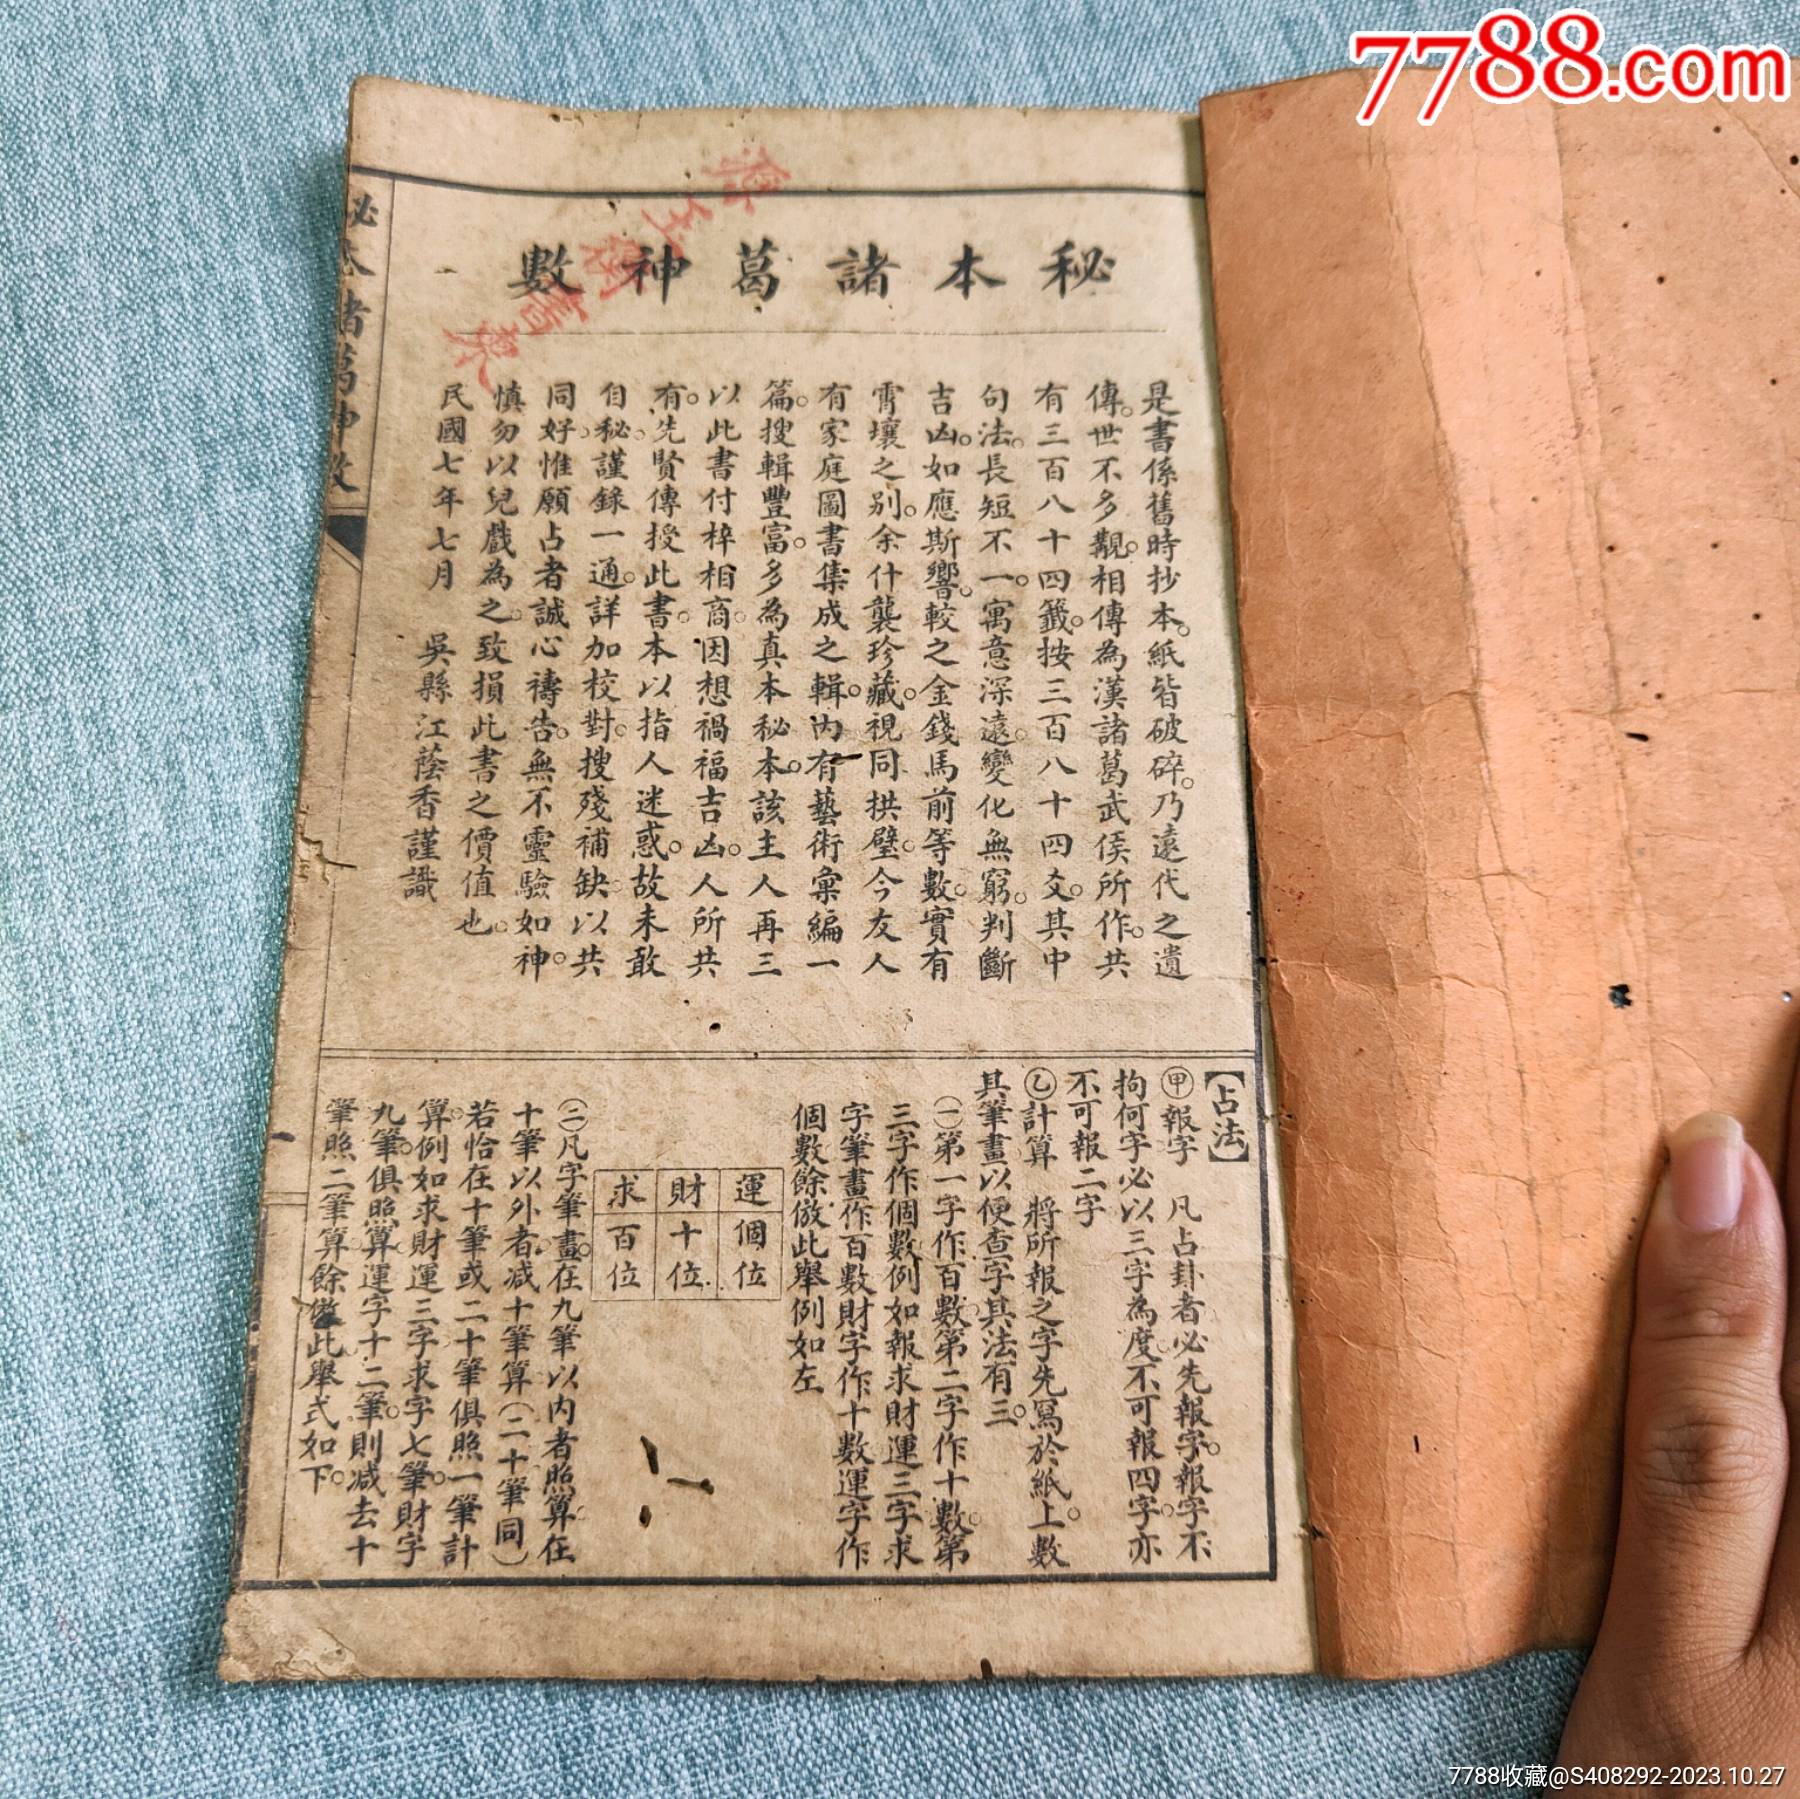 7788.com
秘本諸葛神數
是書係舊時抄本。紙皆破碎。乃遠代之遺
傳。世不多覯。相傳為漢諸葛武侯所作。共
有三百八十四籤。按三百八十四爻。其中
句法。長短不一。寓意深遠。變化無窮。判斷
吉凶。如應斯響。較之金錢馬前等數。實有
霄壤之别。余什襲珍藏。視同拱璧。今友人
有家庭圖書集成之輯。內有藝術彙編一
篇。搜輯豐富。多為真本秘本。該主人再三
以此書付梓相商。因想禍福吉凶。人所共
有。先賢傳授此書。本以指人迷惑。故未敢
自秘。謹錄一通。詳加校對。搜殘補缺。以共
同好。惟願占者誠心禱告。無不靈驗如神。
慎勿以兒戲為之。致損此書之價值也。
民國七年七月 吳縣江蔭香謹識
【占法】
㊙甲 報字 凡占卦者必先報字。報字不
拘何字必以三字為度。不可報四字亦
不可報二字
乙 計算 將所報之字先寫於紙上。數
其筆畫以便查字其法有三。
㈠第一字作百數。第二字作十數。第
三字作個數。例如報求財運三字求
字筆畫作百數財字作十數運字作
個數餘倣此舉例如左
運 個位
財 十位
求 百位
㈡凡字筆畫。在九筆以內者照算在
十筆以外者。减十筆算(二十筆同)
若恰在十筆或二十筆俱照一筆計
算。例如求財運三字求字七筆。財字
九筆。俱照算。運字十二筆。則减去十
筆照二筆算餘倣此舉式如下。
秘本諸葛神數
7788收藏@S408292-2023.10.27